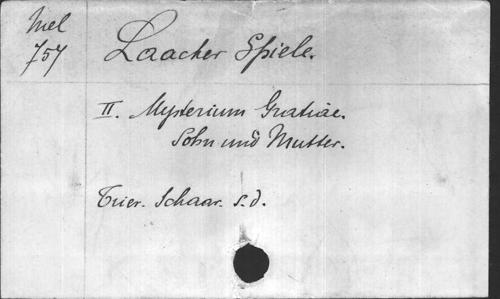 Mel
757
Laacher Spiele.
II. Mysterium Gratiae.
Sohn und Mutter.
Trier. Schaar. s.d.